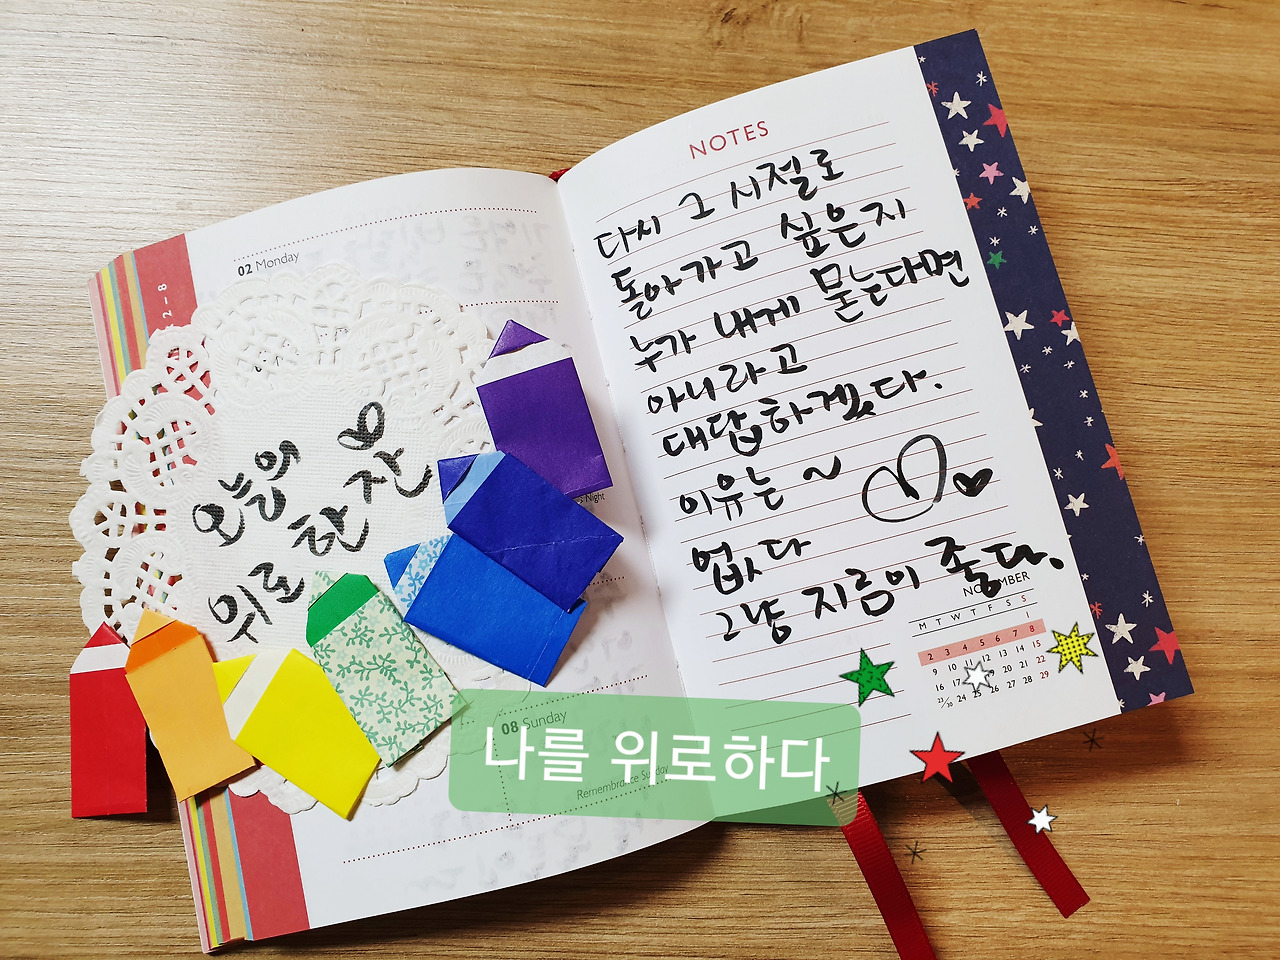 02 Monday
2 - 8
오늘의
위로 한 잔
s Night
08 Sunday
Remembrance Sunday
NOTES
다시 그 시절로
돌아가고 싶은지
누가 내게 묻는다면
아니라고
대답하겠다.
이유는 ~
없다
그냥 지금이 좋다.
NOVEMBER
M T W T F S S
1
2 3 4 5 6 7 8
9 10 11 12 13 14 15
16 17 18 19 20 21 22
23/30 24 25 26 27 28 29
나를 위로하다